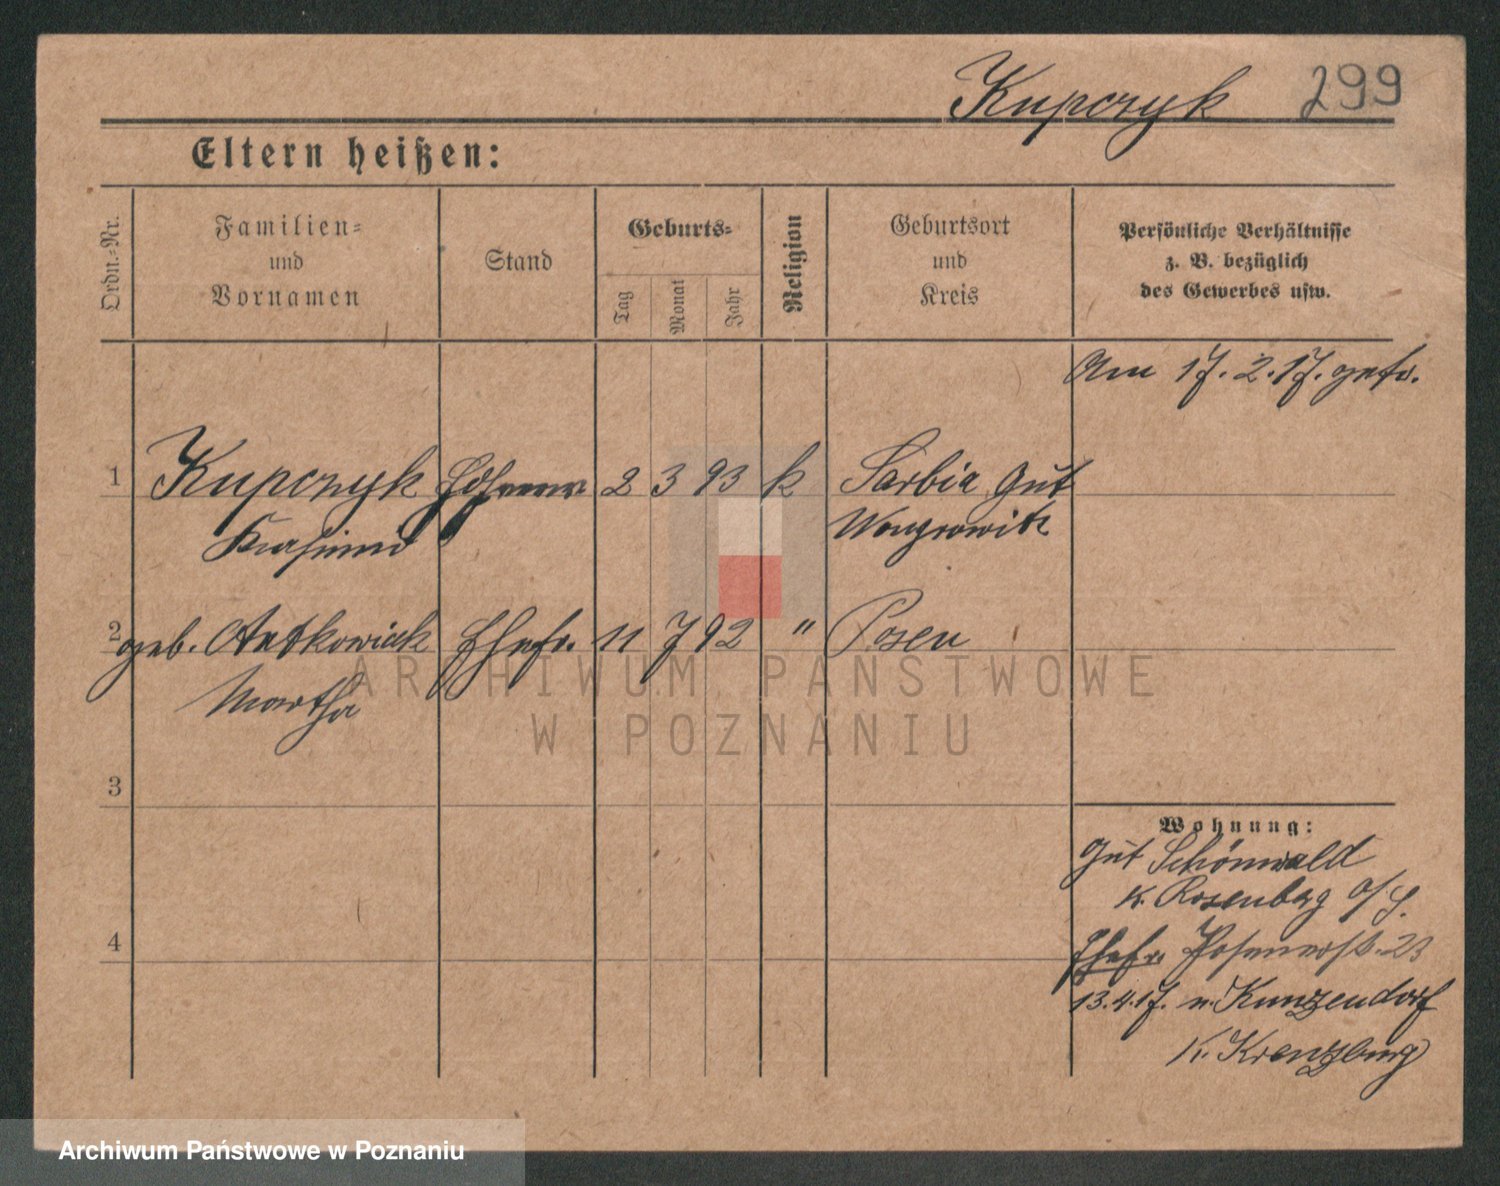 Kupczyk 299
Eltern heißen:
Ordn.-Nr.
Familien-
und
Vornamen
Stand
Geburts-
Tag
Monat
Jahr
Religion
Geburtsort
und
Kreis
Persönliche Verhältnisse
z. B. bezüglich
des Gewerbes usw.
Am 17.2.17. getr.
1 Kupczyk 2 3 93 k Sarbia Gut
Kasimir Wongrowitz
2 geb. Ratkowiak Ehefr. 11 7 92 " Posen
Martha
3
4
Wohnung:
Gut Schönwald
K. Rosenberg O/S.
Ehefr. Posenerstr. 23
13.4.17. n. Kunzendorf
K. Kreuzburg
ARCHIWUM PAŃSTWOWE
W POZNANIU
Archiwum Państwowe w Poznaniu